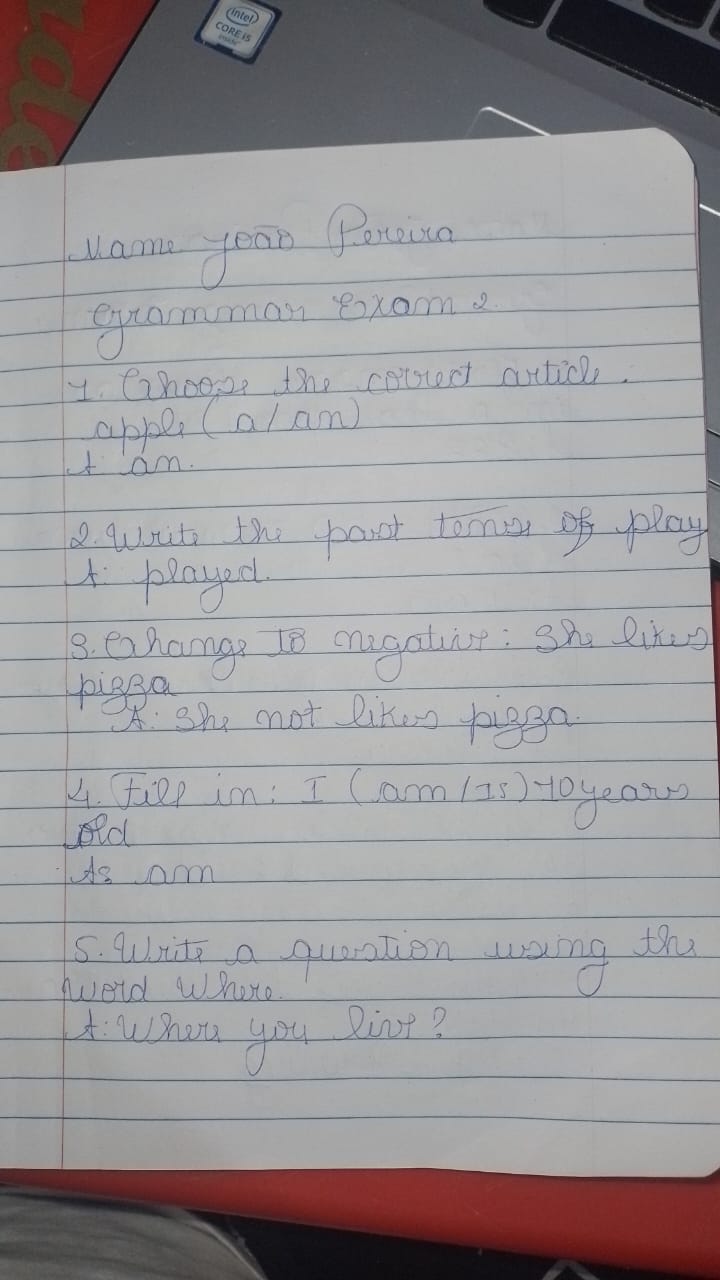 intel
CORE i5
inside
Name João Pereira
Grammar Exam 2.
1. Choose the correct article.
apple (a/an)
A: an.
2. Write the past tense of play
A: played.
3. Change to negative: She likes
pizza
A: She not likes pizza.
4. Fill in: I (am/Is) 10 years
old
A: am
5. Write a question using the
word Where.
A: Where you live?